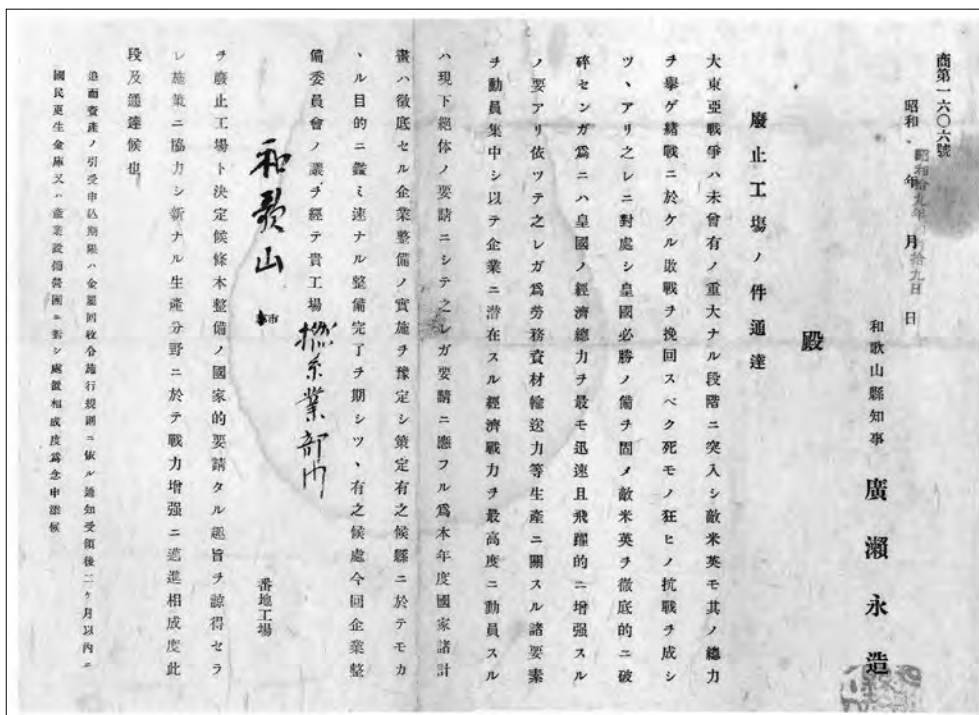 商第一六〇六號
昭和 年 月 日
昭和拾九年 月拾九日
和歌山縣知事 廣瀬永造
殿
廢止工場ノ件通達
大東亞戰爭ハ未曾有ノ重大ナル段階ニ突入シ敵米英モ其ノ總力
ヲ擧ゲ緒戰ニ於ケル敗戰ヲ挽回スベク死モノ狂ヒノ抗戰ヲ成シ
ツヽアリ之レニ對處シ皇國必勝ノ備ヲ固メ敵米英ヲ徹底的ニ破
碎センガ爲ニハ皇國ノ經濟總力ヲ最モ迅速且飛躍的ニ增强スル
ノ要アリ依ツテ之レガ爲勞務資材輸送力等生產ニ關スル諸要素
ヲ動員集中シ以テ企業ニ潜在スル經濟戰力ヲ最高度ニ動員スル
ハ現下絕体ノ要請ニシテ之レガ要請ニ應フル爲本年度國家諸計
畫ハ徹底セル企業整備ノ實施ヲ豫定シ策定有之候縣ニ於テモカ
ヽル目的ニ鑑ミ速ナル整備完了ヲ期シツヽ有之候處今回企業整
備委員會ノ議ヲ經テ貴工場 撚糸業部門
和歌山 市 番地工場
ヲ廢止工場ト決定候條本整備ノ國家的要請タル趣旨ヲ諒得セラ
レ施策ニ協力シ新ナル生產分野ニ於テ戰力增强ニ邁進相成度此
段及通達候也
追而資產ノ引受申込期限ハ金屬回收令施行規則ニ依ル通知受領後二ケ月以內ニ
國民更生金庫又ハ產業設備營團ニ對シ處置相成度爲念申添候